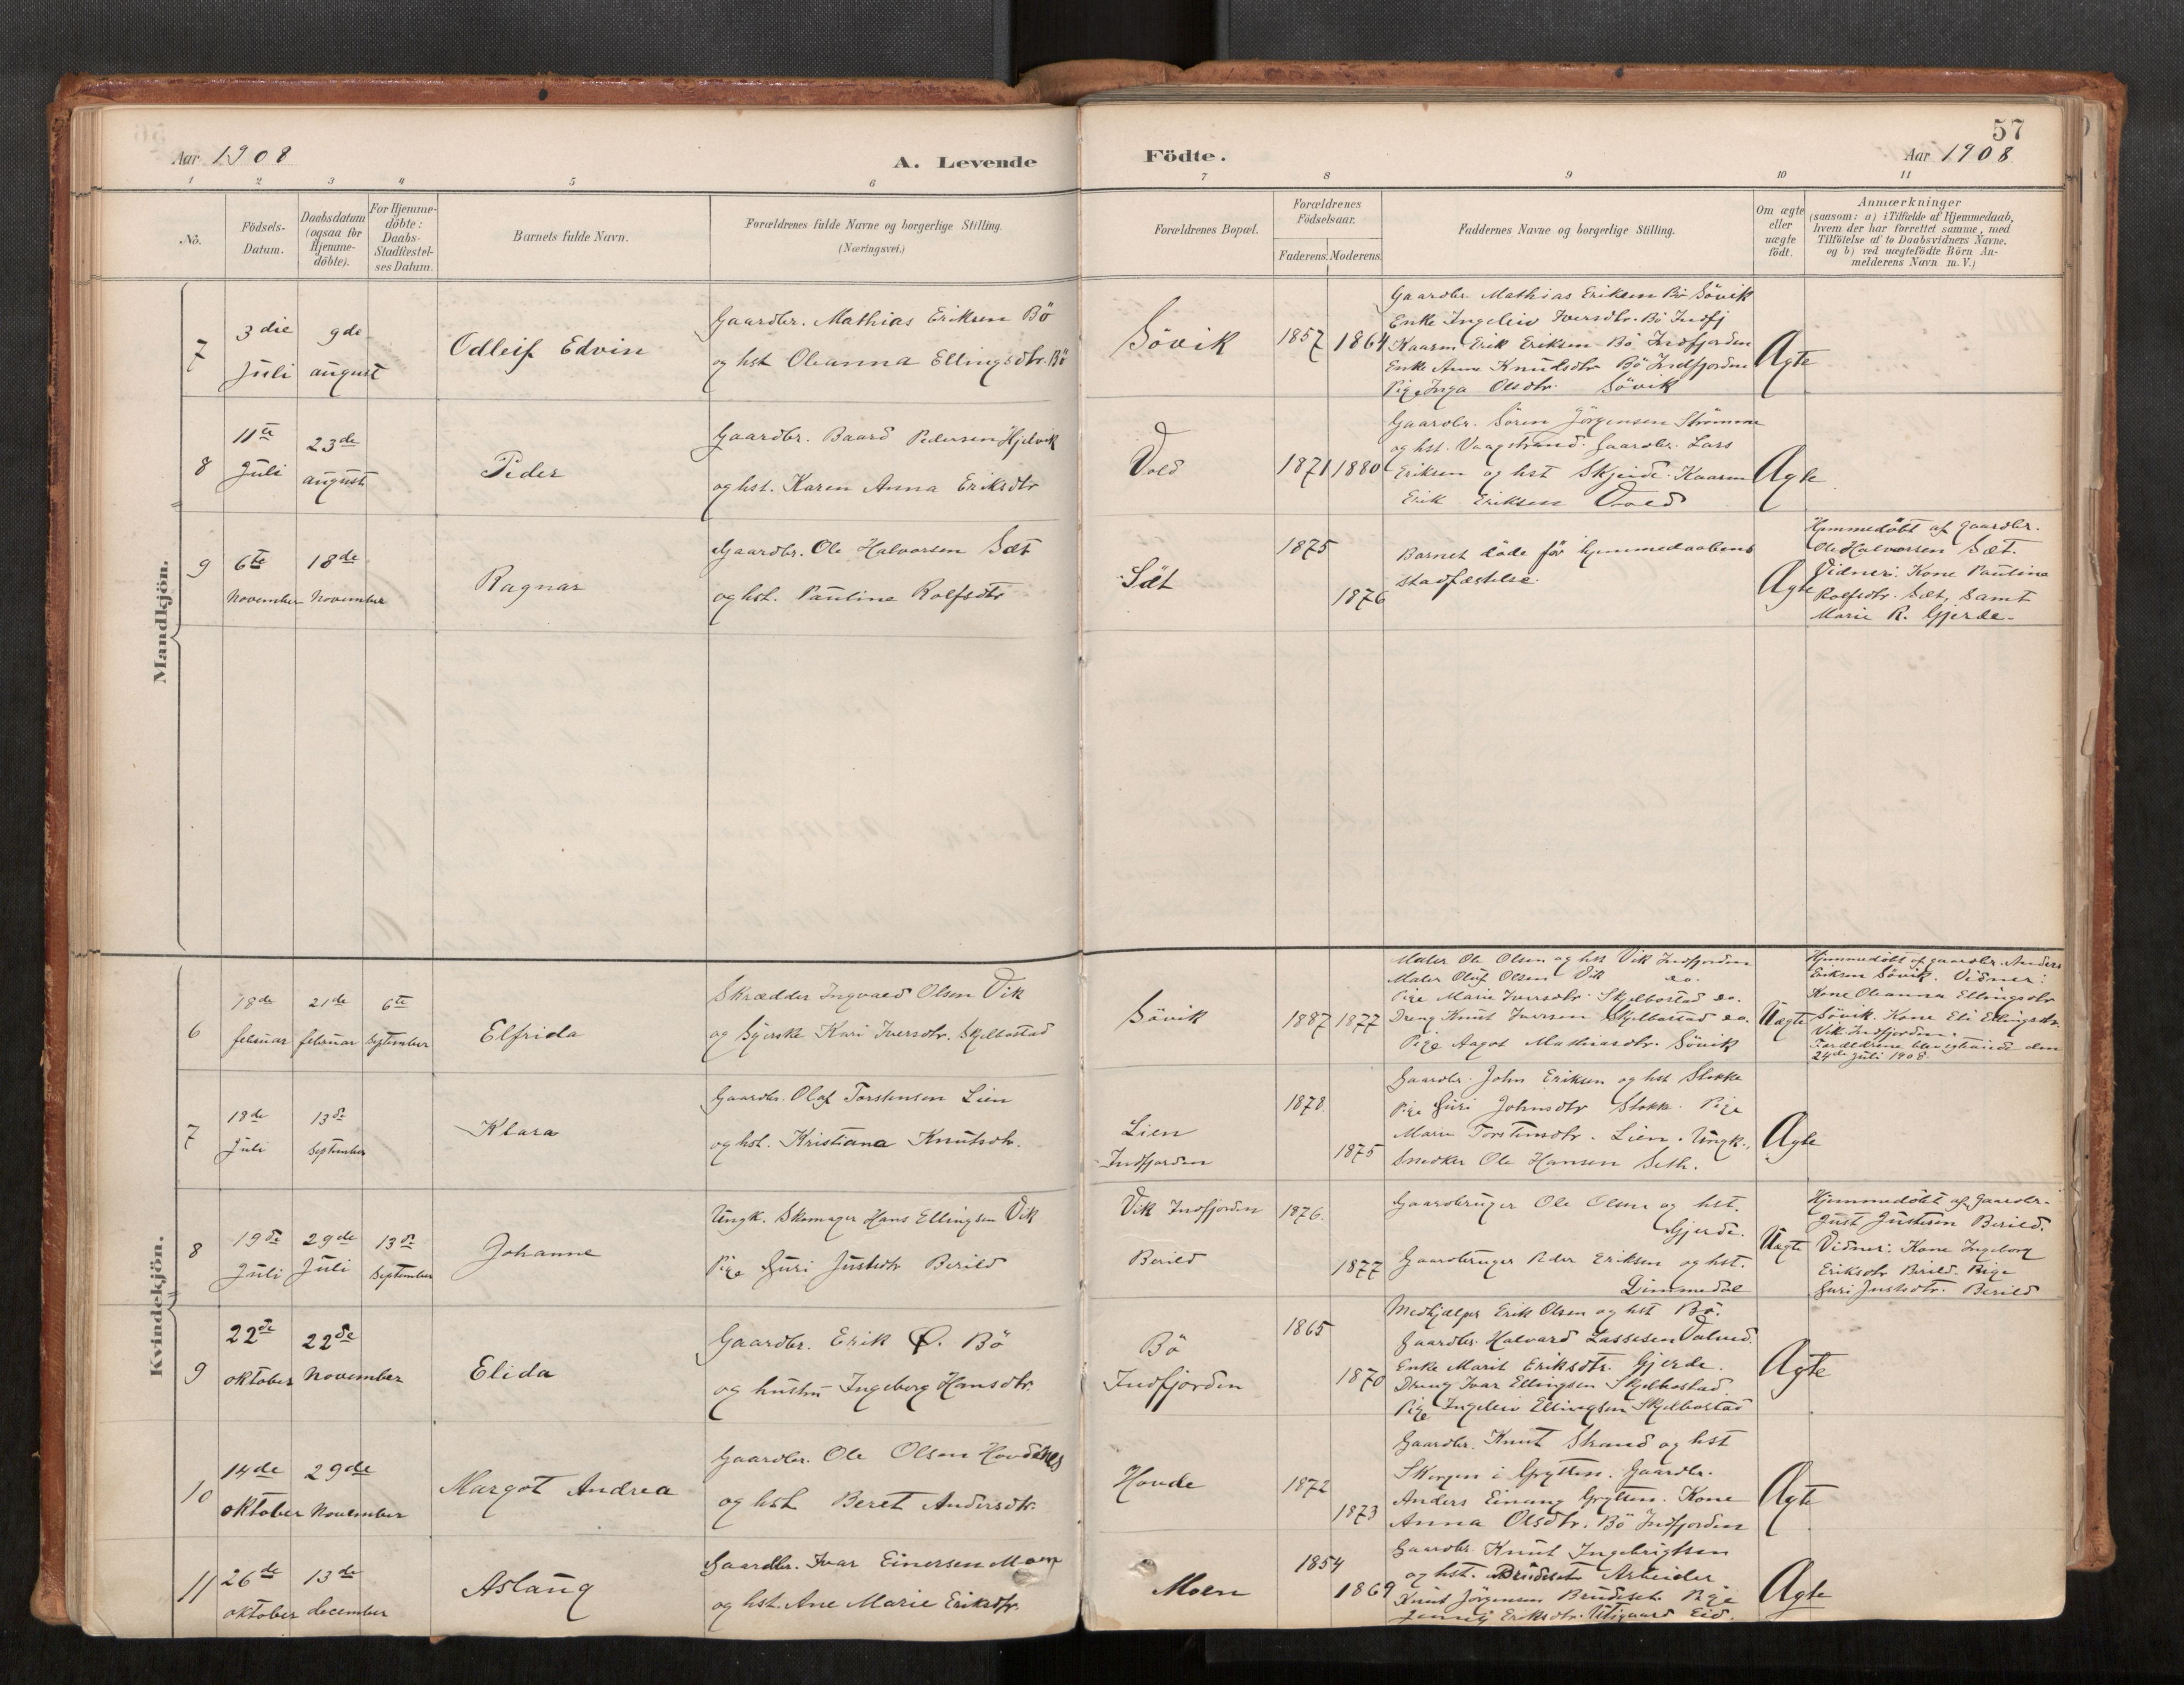 57
Aar 1908
A. Levende
Födte.
Aar 1908
1 2 3 4 5 6 7 8 9 10 11
No.
Födsels-
Datum.
Daabsdatum
(ogsaa for
Hjemme-
döbte).
For Hjemme-
döbte:
Daabs-
Stadfæstel-
ses Datum.
Barnets fulde Navn.
Forældrenes fulde Navne og borgerlige Stilling.
(Næringsvei.)
Forældrenes Bopæl.
Forældrenes
Födselsaar.
Faderens. Moderens.
Faddernes Navne og borgerlige Stilling.
Om ægte
eller
uægte
födt.
Anmærkninger
(saasom: a) i Tilfælde af Hjemmedaab,
hvem der har forrettet samme, med
Tilföielse af to Daabsvidners Navne.
og b) ved uægtefödte Börn An-
melderens Navn m. V.)
Mandkjön.
7
3die
Juli
9de
august
Odleif Edvin
Gaardbr. Mathias Eriksen Bö
og hst Oleanna Ellingsdtr. Bö
Sövik
1857
1864
Gaardbr. Mathias Eriksen Bö Sövik
Enke Ingeleiv Iversdtr. Bö Indfj
Kaarm Erik Eriksen Bö Indfjorden
Enke Anne Knutsdtr Bö Indfjorden
Pige Inga Olsdtr. Sövik
Ægte
8
11te
Juli
23de
august
Peder
Gaardbr. Baard Pedersen Hjelvik
og hst. Karen Anna Eriksdtr
Vold
1871
1880
Gaardbr. Sören Jörgensen Strömme
og hst. Vaagstrand. Gaardbr. Lars
Eriksen og hst Skjeide. Kaarm
Erik Eriksen Vold
Ægte
9
6te
November
18de
November
Ragnar
Gaardbr. Ole Halvorsen Sæt
og hst. Pauline Rolfsdtr
Sæt
1875
1876
Barnet döde för hjemmedaabens
stadfæstelse.
Ægte
Hjemmedöbt af gaardbr.
Ole Halvorsen Sæt.
Vidner: Kone Pauline
Rolfsdtr. Sæt, samt
Marie R. Gjerde.
Kvindekjön.
6
18de
februar
21de
februar
6te
September
Elfrida
Skrædder Ingvald Olsen Vik
og Syerske Kari Iversdtr. Skjelbostad
Sövik
1887
1877
Maler Ole Olsen og hst Vik Indfjorden
Maler Oluf Olsen Vik do.
Pige Marie Iversdtr. Skjelbostad do.
Dreng Knut Iversen Skjelbostad do.
Pige Aagot Mathiasdtr. Sövik
Uægte
Hjemmedöbt af gaardbr. Anders
Eriksen Sövik. Vidner:
Kone Oleanna Ellingsdtr
Sövik. Kone Eli Ellingsdtr.
Vik Indfjorden.
Forældrene blev egteviede den
24de Juli 1908.
7
18de
Juli
13de
September
Klara
Gaardbr. Olaf Torstensen Lien
og hst. Kristiana Knutsdtr.
Lien
Indfjorden
1878
1875
Gaardbr. John Eriksen og hst Stokke
Pige Guri Johnsdtr Stokk. Pige
Marie Torstensdtr. Lien. Ungk.,
Snedker Ole Hansen Seth.
Ægte
8
19de
Juli
29de
Juli
13de
September
Johanne
Ungk. Skomager Hans Ellingsen Vik
Pige Guri Justsdtr Berild
Vik Indfjorden
Berild
1876.
1877
Gaardbruger Ole Olsen og hst.
Gjerde.
Gaardbruger Peder Eriksen og hst.
Dimmedal
Uægte
Hjemmedöbt af Gaardbr.
Just Justesen Berild.
Vidner: Kone Ingeborg
Eriksdtr Berild. Pige
Guri Justsdtr. Berild
9
22de
oktober
22de
November
Elida
Gaardbr. Erik O. Bö
og hustru Ingeborg Hansdtr.
Bö
Indfjorden
1865
1870
Medhjælper Erik Olsen og hst Bö.
Gaardbr. Halvard Lassesen Dalued.
Enke Marit Eriksdtr. Gjerde.
Dreng Ivar Ellingsen Skjelbostad
Pige Ingeleiv Ellingsen Skjelbostad
Ægte
10
14de
oktober
29de
November
Margot Andrea
Gaardbr. Ole Olsen Hovdenes
og hst Beret Andersdtr.
Hovde
1872
1873
Gaardbr. Knut Strand og hst
Skorgen i Grytten. Gaardbr.
Anders Einang Grytten. Kone
Anna Olsdtr. Bö Indfjorden
Ægte
11
26de
oktober
13de
december
Aslaug
Gaardbr. Ivar Einersen Moen
og hst. Ane Marie Eriksdtr.
Moen
1854
1869
Gaardbr. Knut Ingebrigtsen
og hst. Brudeset. Arbeider
Knut Jörgensen Brudeset. Pige
Jenny Eriksdtr. Utigaard Eid.
Ægte